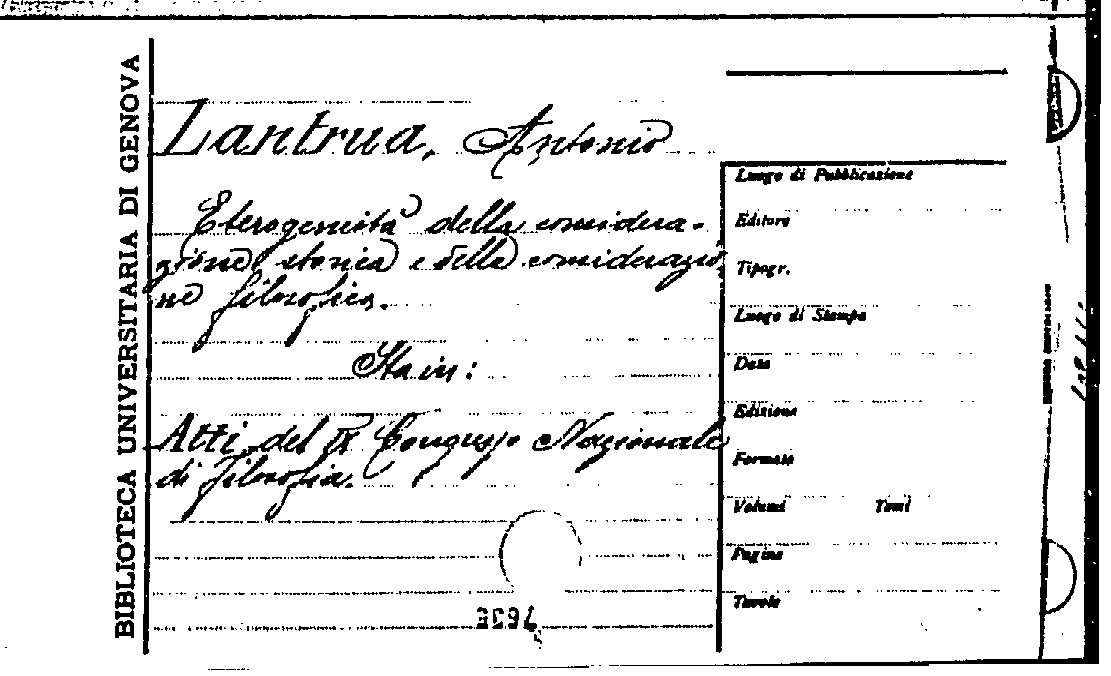 BIBLIOTECA UNIVERSITARIA DI GENOVA
Lantrua, Antonio
Eterogeneità della considera-
zione storica e della considerazio
ne filosofica.
Sta in:
Atti del IX Congresso Nazionale
di filosofia.
Luogo di Pubblicazione
Editore
Tipogr.
Luogo di Stampa
Data
Edizione
Formato
Volumi Tomi
Pagine
Tavole